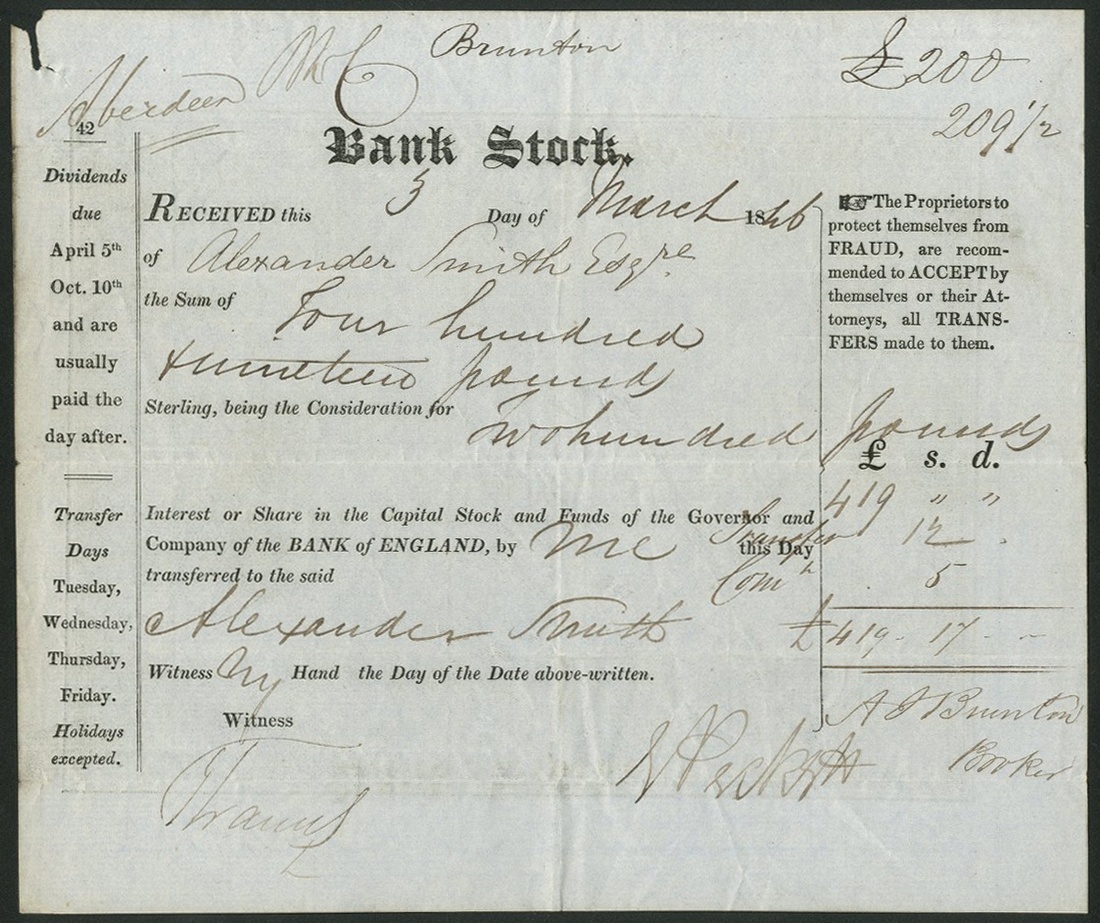 Brunton
£200
Aberdeen
209 1/2
42
Bank Stock.
Dividends
due
April 5th
Oct. 10th
and are
usually
paid the
day after.
Transfer
Days
Tuesday,
Wednesday,
Thursday,
Friday.
Holidays
excepted.
RECEIVED this 5 Day of March 1846
of Alexander Smith Esqre
the Sum of Four hundred
& nineteen pounds
Sterling, being the Consideration for
Two hundred pounds
Interest or Share in the Capital Stock and Funds of the Governor and
Company of the BANK of ENGLAND, by me this Day
transferred to the said
Alexander Smith
Witness my Hand the Day of the Date above-written.
Witness
☞ The Proprietors to
protect themselves from
FRAUD, are recom-
mended to ACCEPT by
themselves or their At-
torneys, all TRANS-
FERS made to them.
£ s. d.
419 " "
Transfer 12 .
Comn . 5
£419 - 17 - -
A J Brunton
Broker